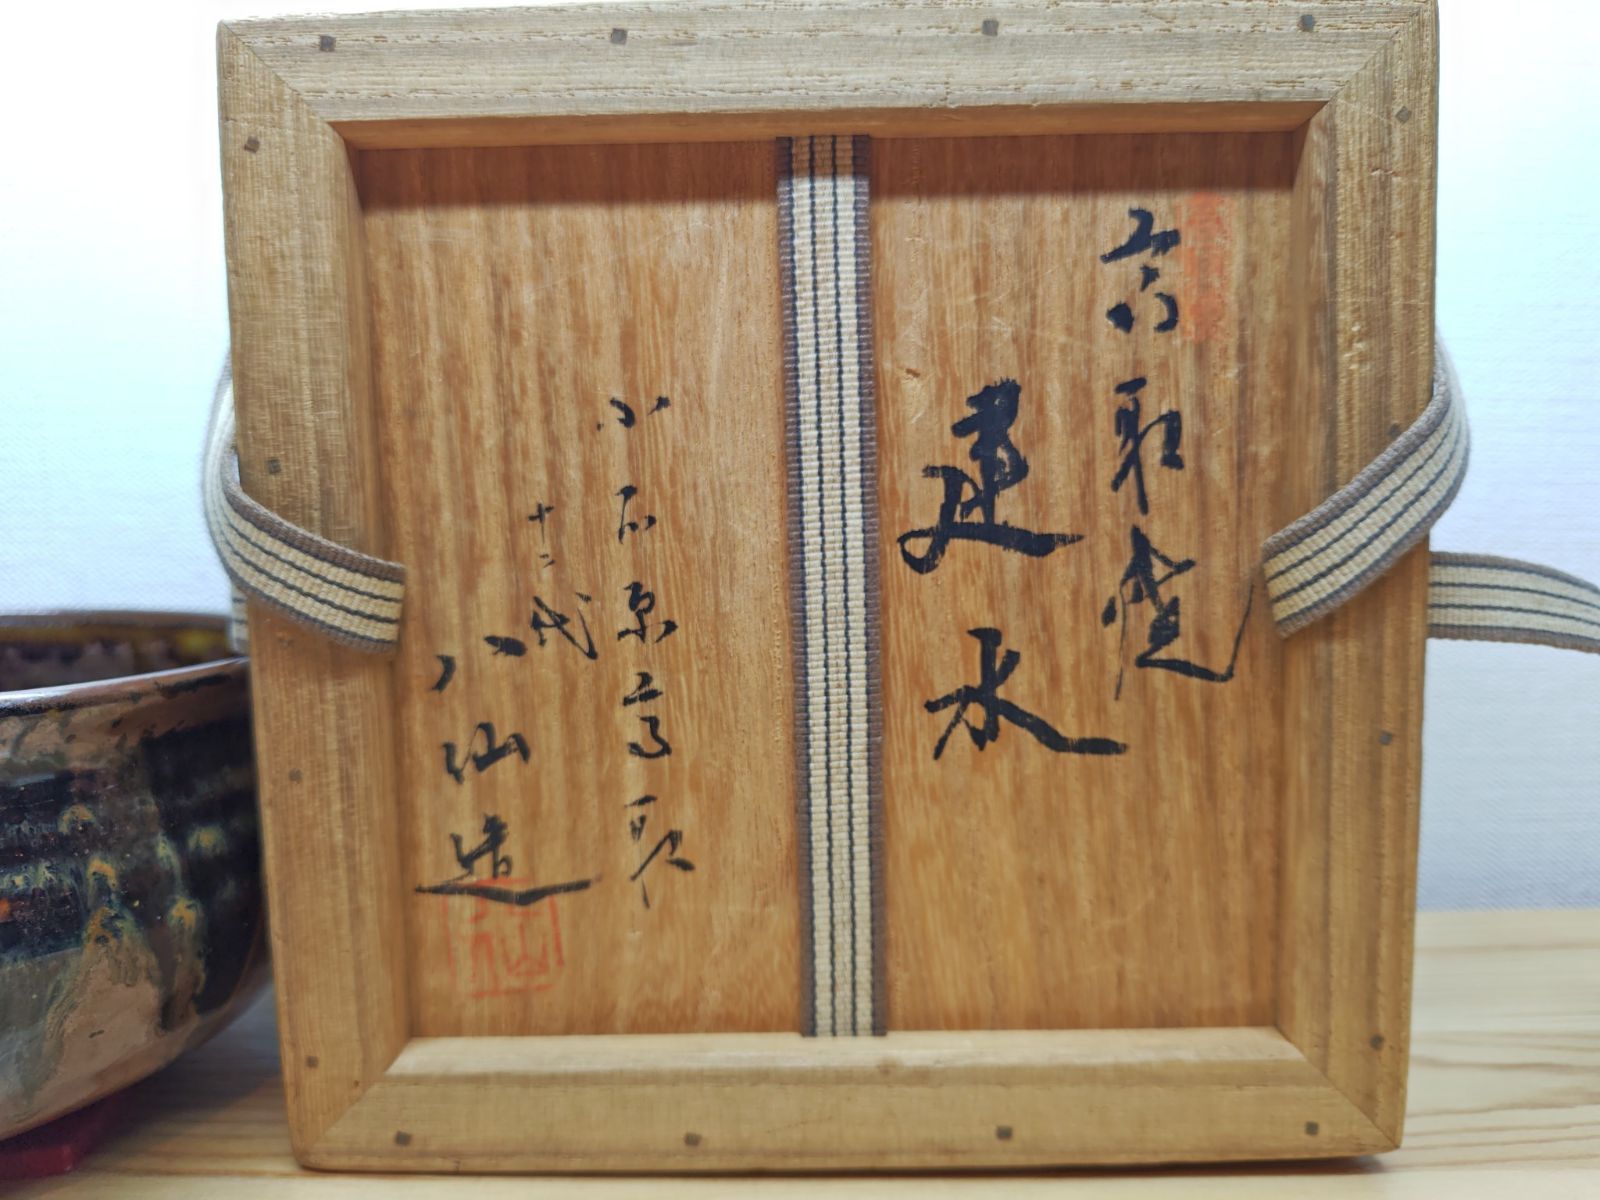 高取焼
建水
小石原高取
十二代
八仙造